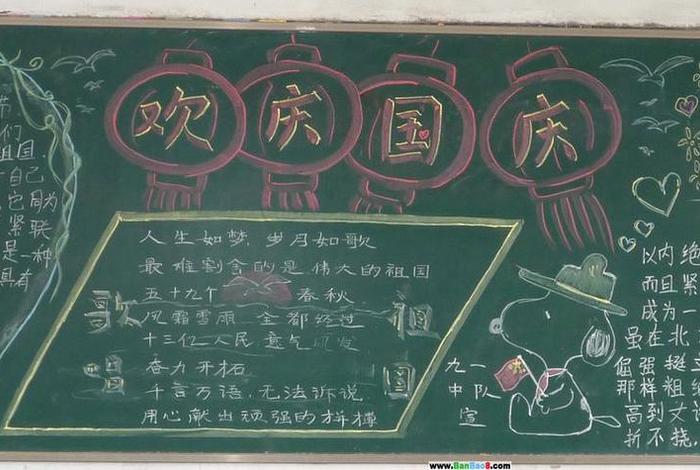 欢庆国庆
们
祖国
自己
它同为
紧联
是一种
具有
人生如梥，岁月如歌
最难割舍的是伟大的祖国
五十九个 春秋
风霜雪雨 全都经过
十三亿人民 意气风发
奋力开拓
千言万语，无法诉说
用心献出顽强的拼搏
歌
祖
唱
国
九一
中队
宣
以内绝
而且紧
成为一
虽在北
倔强挺
那样粗
高到丈
折不挠
www.BanBao8.com